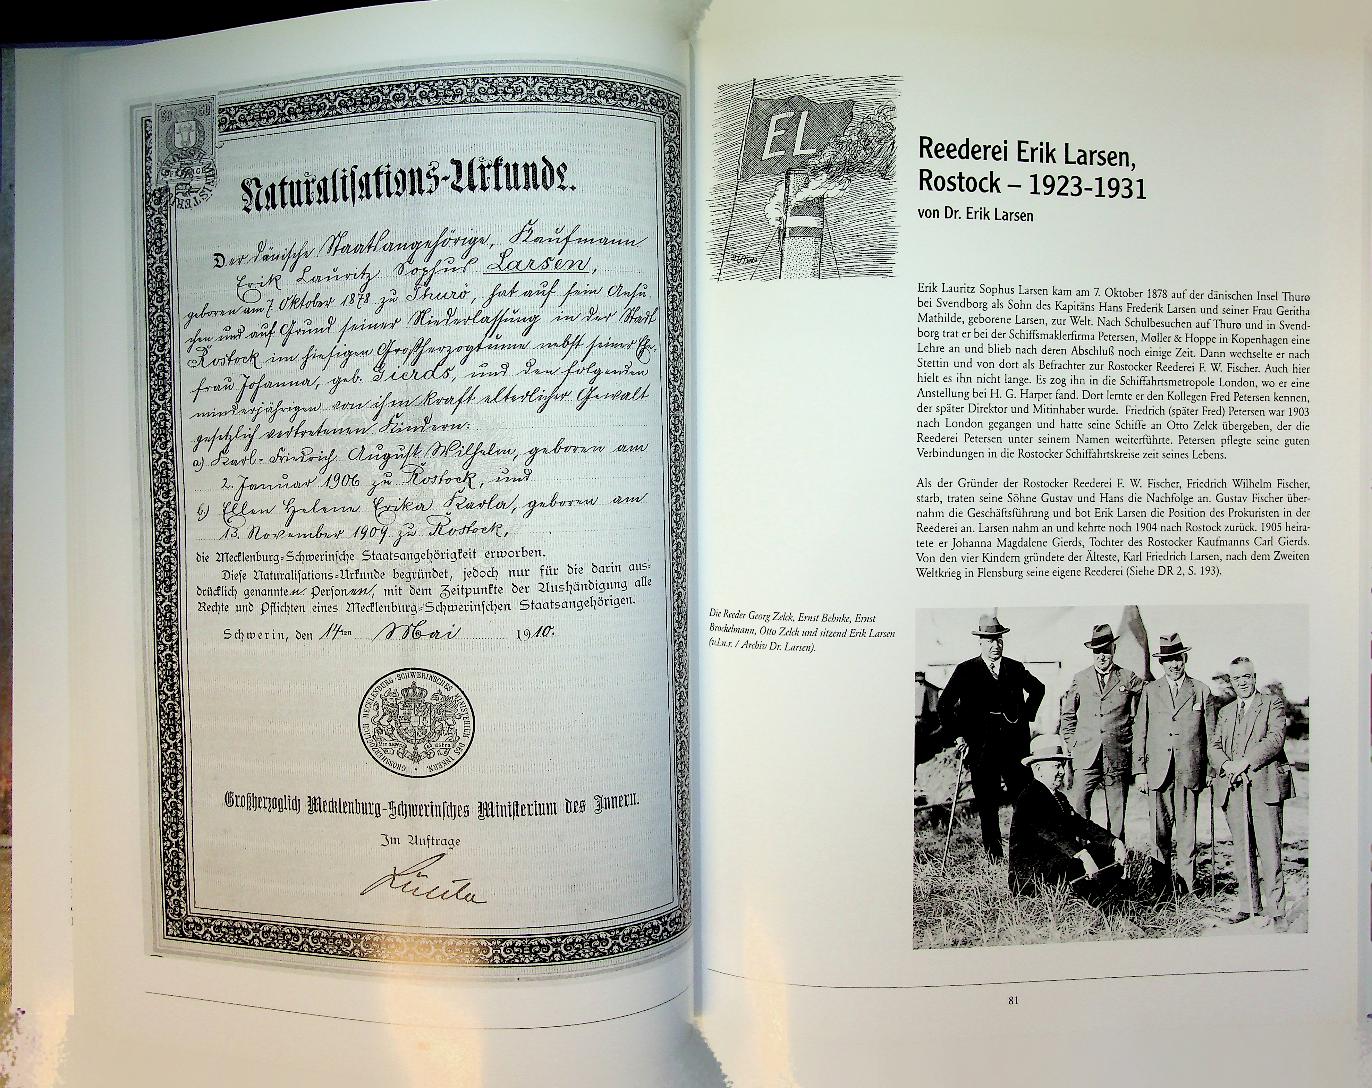 Naturalisations-Urkunde.
Der dänische Staatsangehörige, Kaufmann
Erik Lauritz Sophus Larsen,
geboren am 7. Oktober 1878 zu Thurö, hat auf sein Ansu-
chen und auf Grund seiner Niederlassung in der Stadt
Rostock im hiesigen Großherzogtume nebst seiner Ehe-
frau Johanna, geb. Gierds, und den folgenden
minderjährigen von ihm kraft elterlicher Gewalt
gesetzlich vertretenen Kindern:
a) Karl-Friedrich August Wilhelm, geboren am
2. Januar 1906 zu Rostock, und
b) Ellen Helene Erika Karla, geboren am
13. November 1909 zu Rostock,
die Mecklenburg-Schwerinsche Staatsangehörigkeit erworben.
Diese Naturalisations-Urkunde begründet, jedoch nur für die darin aus-
drücklich genannten Personen, mit dem Zeitpunkte der Aushändigung alle
Rechte und Pflichten eines Mecklenburg-Schwerinschen Staatsangehörigen.
Schwerin, den 14ten Mai 1910.
GROSSHERZOGLICH MECKLENBURG-SCHWERINSCHES MINISTERIUM DES INNERN.
Großherzoglich Mecklenburg-Schwerinsches Ministerium des Innern.
Im Auftrage
EL
Reederei Erik Larsen,
Rostock – 1923-1931
von Dr. Erik Larsen
Erik Lauritz Sophus Larsen kam am 7. Oktober 1878 auf der dänischen Insel Thurø
bei Svendborg als Sohn des Kapitäns Hans Frederik Larsen und seiner Frau Geritha
Mathilde, geborene Larsen, zur Welt. Nach Schulbesuchen auf Thurø und in Svend-
borg trat er bei der Schiffsmaklerfirma Petersen, Møller & Hoppe in Kopenhagen eine
Lehre an und blieb nach deren Abschluß noch einige Zeit. Dann wechselte er nach
Stettin und von dort als Befrachter zur Rostocker Reederei F. W. Fischer. Auch hier
hielt es ihn nicht lange. Es zog ihn in die Schiffahrtsmetropole London, wo er eine
Anstellung bei H. G. Harper fand. Dort lernte er den Kollegen Fred Petersen kennen,
der später Direktor und Mitinhaber wurde. Friedrich (später Fred) Petersen war 1903
nach London gegangen und hatte seine Schiffe an Otto Zelck übergeben, der die
Reederei Petersen unter seinem Namen weiterführte. Petersen pflegte seine guten
Verbindungen in die Rostocker Schiffahrtskreise zeit seines Lebens.
Als der Gründer der Rostocker Reederei F. W. Fischer, Friedrich Wilhelm Fischer,
starb, traten seine Söhne Gustav und Hans die Nachfolge an. Gustav Fischer über-
nahm die Geschäftsführung und bot Erik Larsen die Position des Prokuristen in der
Reederei an. Larsen nahm an und kehrte noch 1904 nach Rostock zurück. 1905 heira-
tete er Johanna Magdalene Gierds, Tochter des Rostocker Kaufmanns Carl Gierds.
Von den vier Kindern gründete der Älteste, Karl Friedrich Larsen, nach dem Zweiten
Weltkrieg in Flensburg seine eigene Reederei (Siehe DR 2, S. 193).
Die Reeder Georg Zelck, Ernst Behnke, Ernst
Brockelmann, Otto Zelck und sitzend Erik Larsen
(v.l.n.r. / Archiv Dr. Larsen).
81